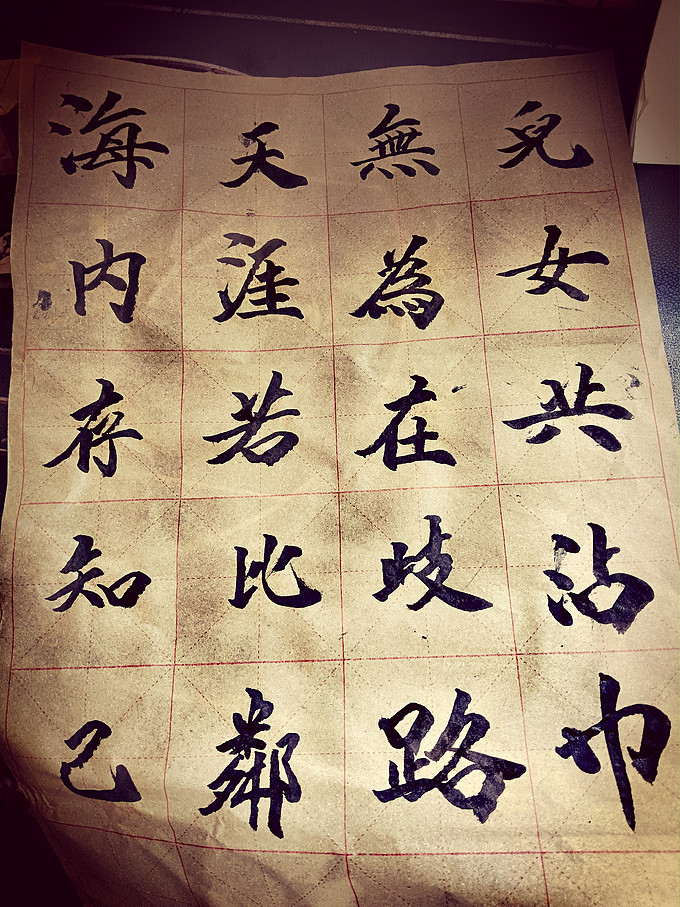 海内存知己
天涯若比鄰
無為在歧路
兒女共沾巾